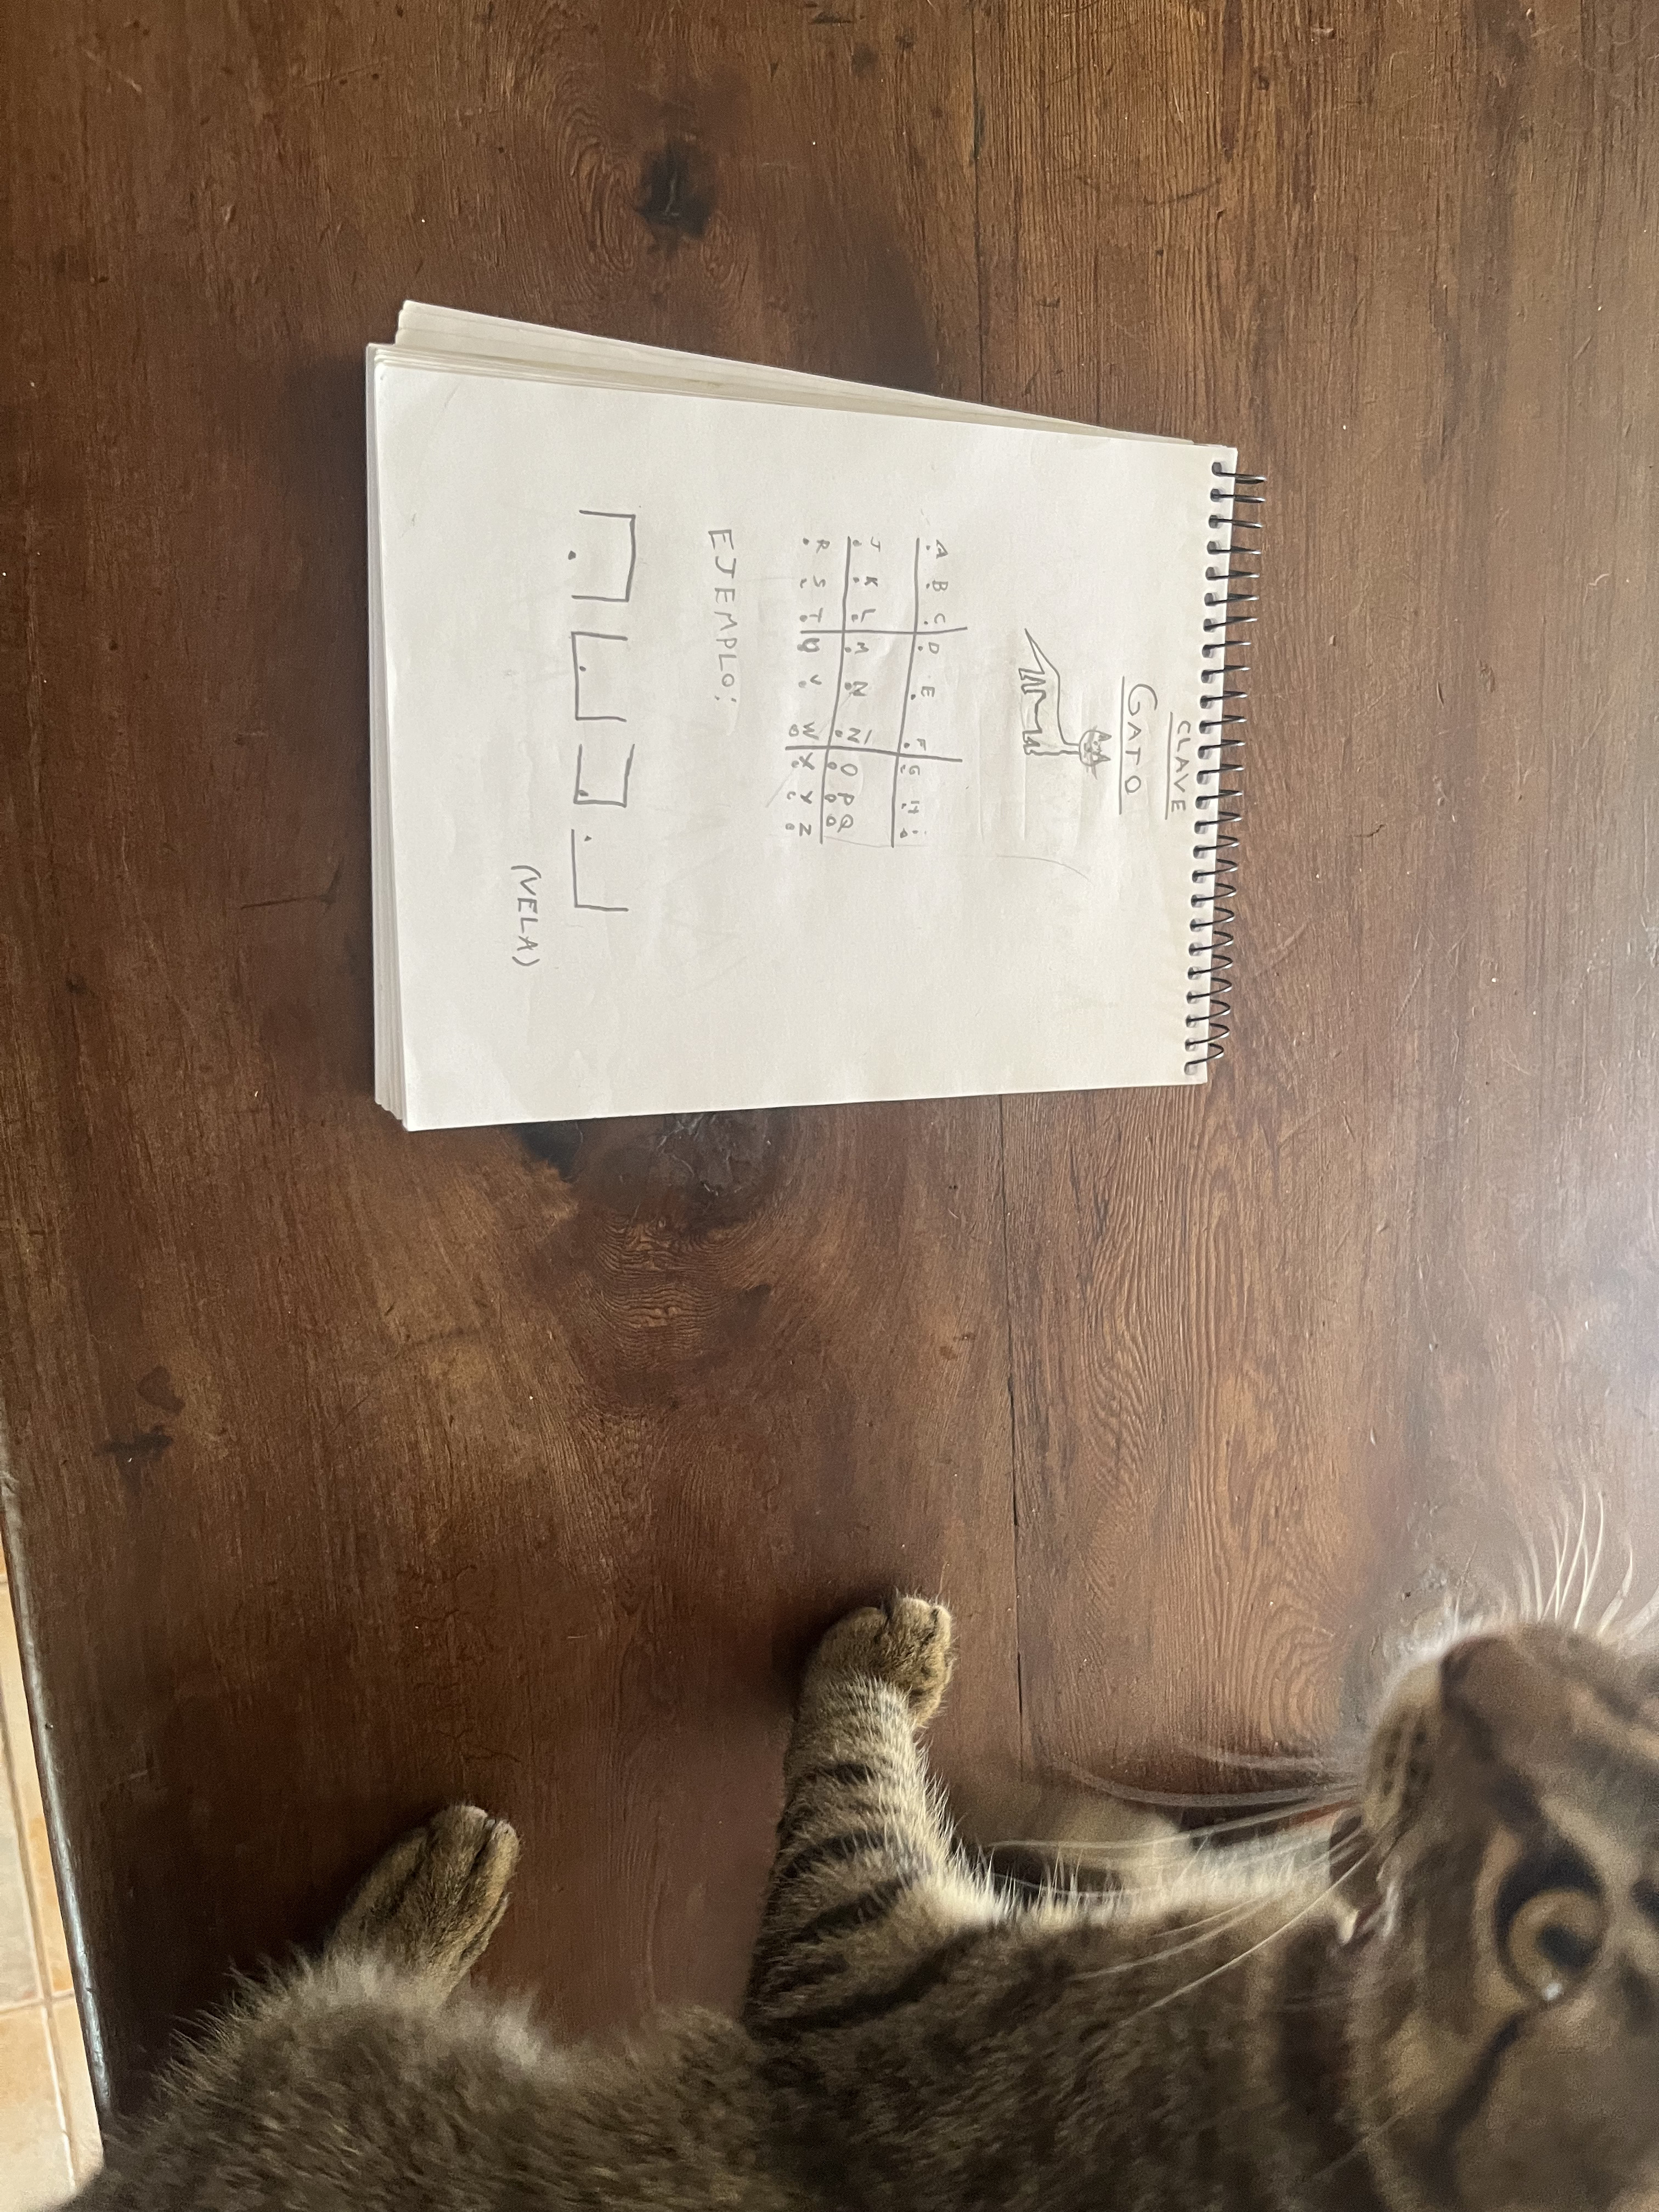 CLAVE
GATO
A B C D E F G H i
J K L M N Ñ O P Q
R S T U V W X Y Z
EJEMPLO:
(VELA)